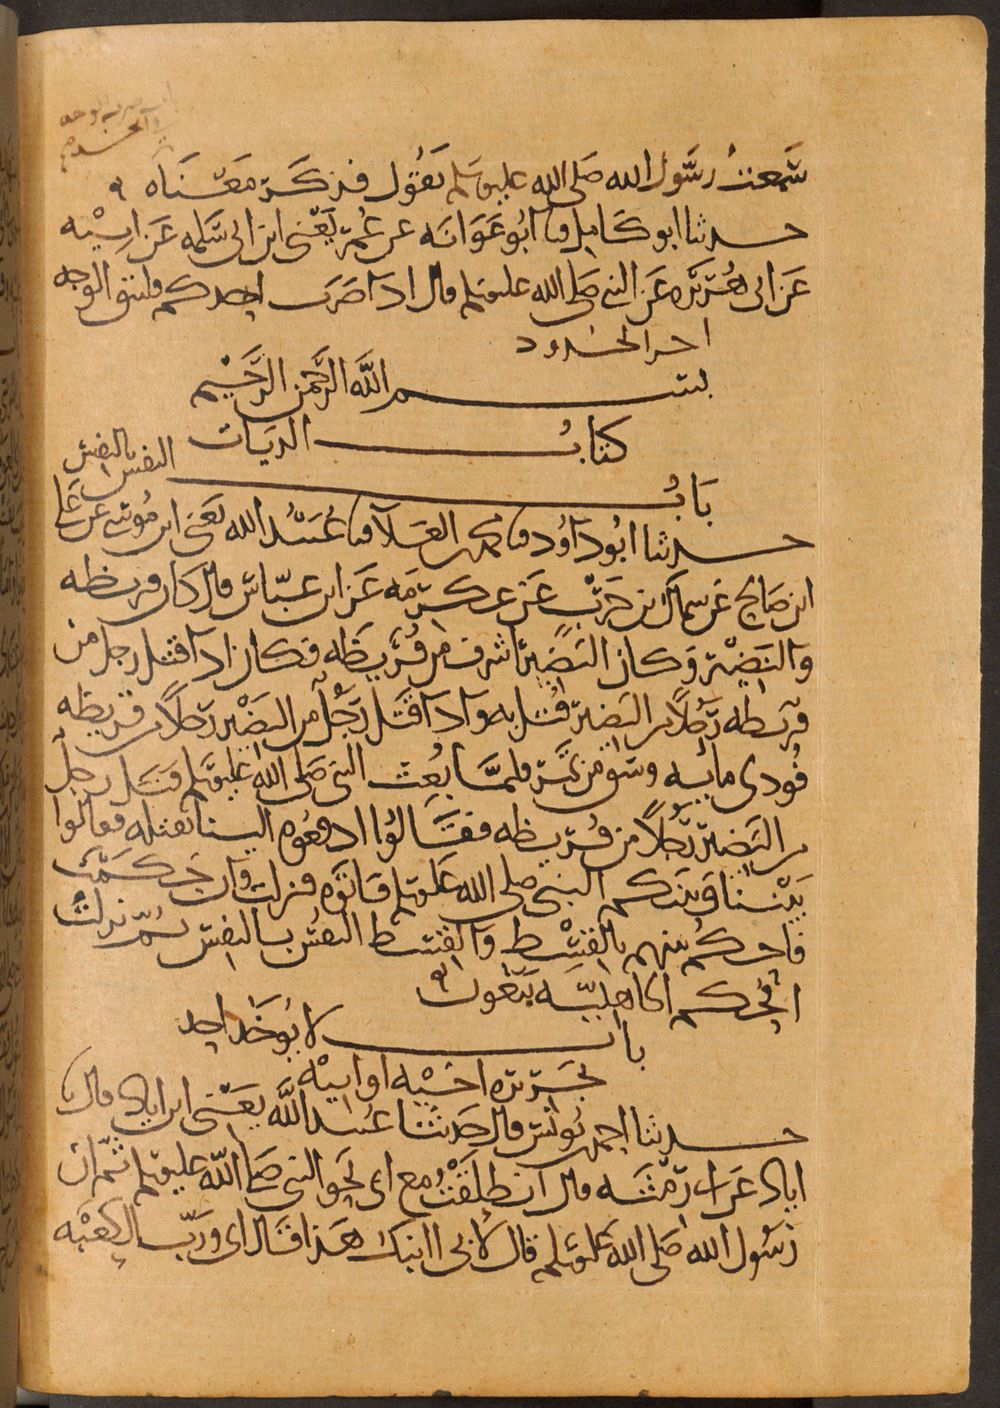 باب ضرب الوجه
في الحد
سَمعتُ رسَول الله صَلى الله عليه وسلم يَقُول فذكَر معَناه
حدثنا ابو كامل نا ابُو عَوَانَه عن عُمر يَعْني ابن ابي سَلمه عَن ابيْه
عَن ابي هُريَره عَن النبي صَلى الله عليه وسلم قال اذا ضَرَب احدكم فليتق الوجه
اخر الحدود
بسم الله الرَّحمن الرَّحَيْم
كتابُ الديَات
بَابُ النفس بالنفس
حدثنا ابُو دَاوُد نا محمد بن العَلاَ نا عُبَيْدُ الله يَعَني ابن مُوسَى عَن عَلي
ابن صَالح عَن سماك بن حَرْب عَن عكرمَه عَن ابن عبّاس قال كان قريظه
وَالنَضِيْر وَكان النَضِير اشرف من قُرَيظَه فكان اذا قتل رجل من
قريظه رَجُلاً من النَضير قُتل به وَاذا قَتَل رَجُل من النَضْير رَجلاً من قريظه
فُودى مايه وسق من تَمَر فلمَّا بُعِث النبي صَلى الله عليه وسلم قتل رجل
من النَضِير رَجُلاً من قُريظه فقَالوُا ادفعُوه الينا نقتله فقالوا
بَيْننا وَبينَكم النبي صلى الله عَليه وسلم فَاتَوه فنزلت وَان حَكمَت
فاحكُم بينهم بالقسْط وَالقسط النفسُ بالنفس ثمّ نزلت
افحُكم الجاهليّه يَبْغون
باب لا يُوخَذ احد
بجَريره اخيْه او ابيْه
حدثنا احمد بن يُونس قال حَدثنا عُبيد اللَّه يعَني ابن اياد قال نا
اياد عَن ابي رِمْثَه قال انطلَقْتُ مع ابي نحو النبي صَلى الله عليه وسلم ثمّ ان
رَسُول الله صَلى الله عليه وسلم قال لاَبي اابنك هَذا قَال اى وَربّ الكعْبَه